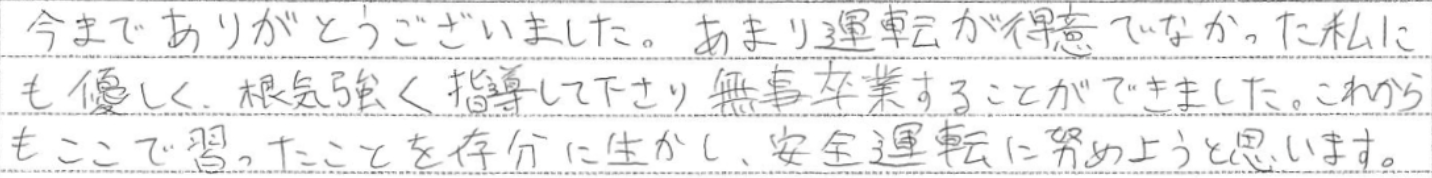 今までありがとうございました。あまり運転が得意でなかった私に
も優しく、根気強く指導して下さり無事卒業することができました。これから
もここで習ったことを存分に生かし、安全運転に努めようと思います。